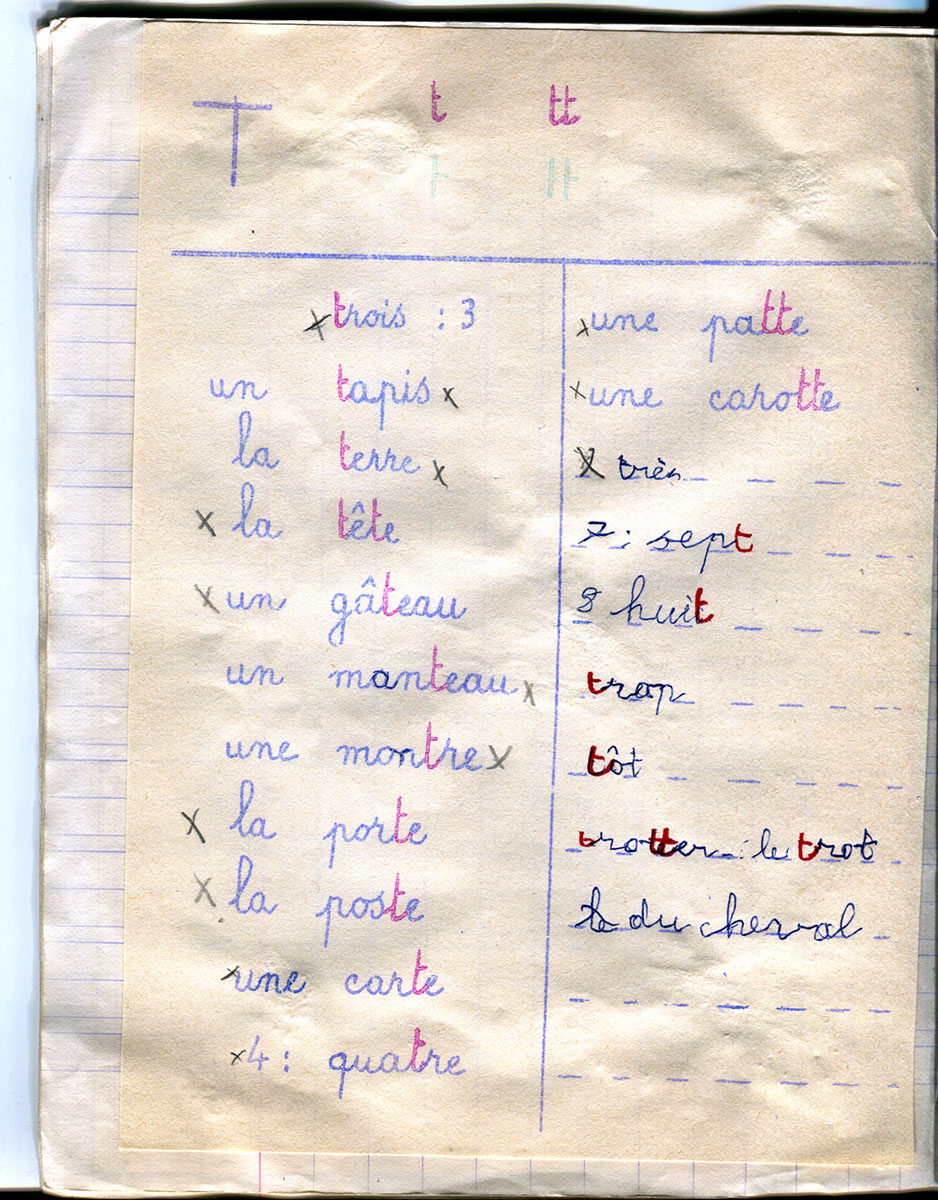 T t tt
t tt
trois : 3
un tapis
la terre
la tête
un gâteau
un manteau
une montre
la porte
la poste
une carte
4 : quatre
une patte
une carotte
très
7 : sept
8 huit
trop
tôt
trotter : le trot
du cheval